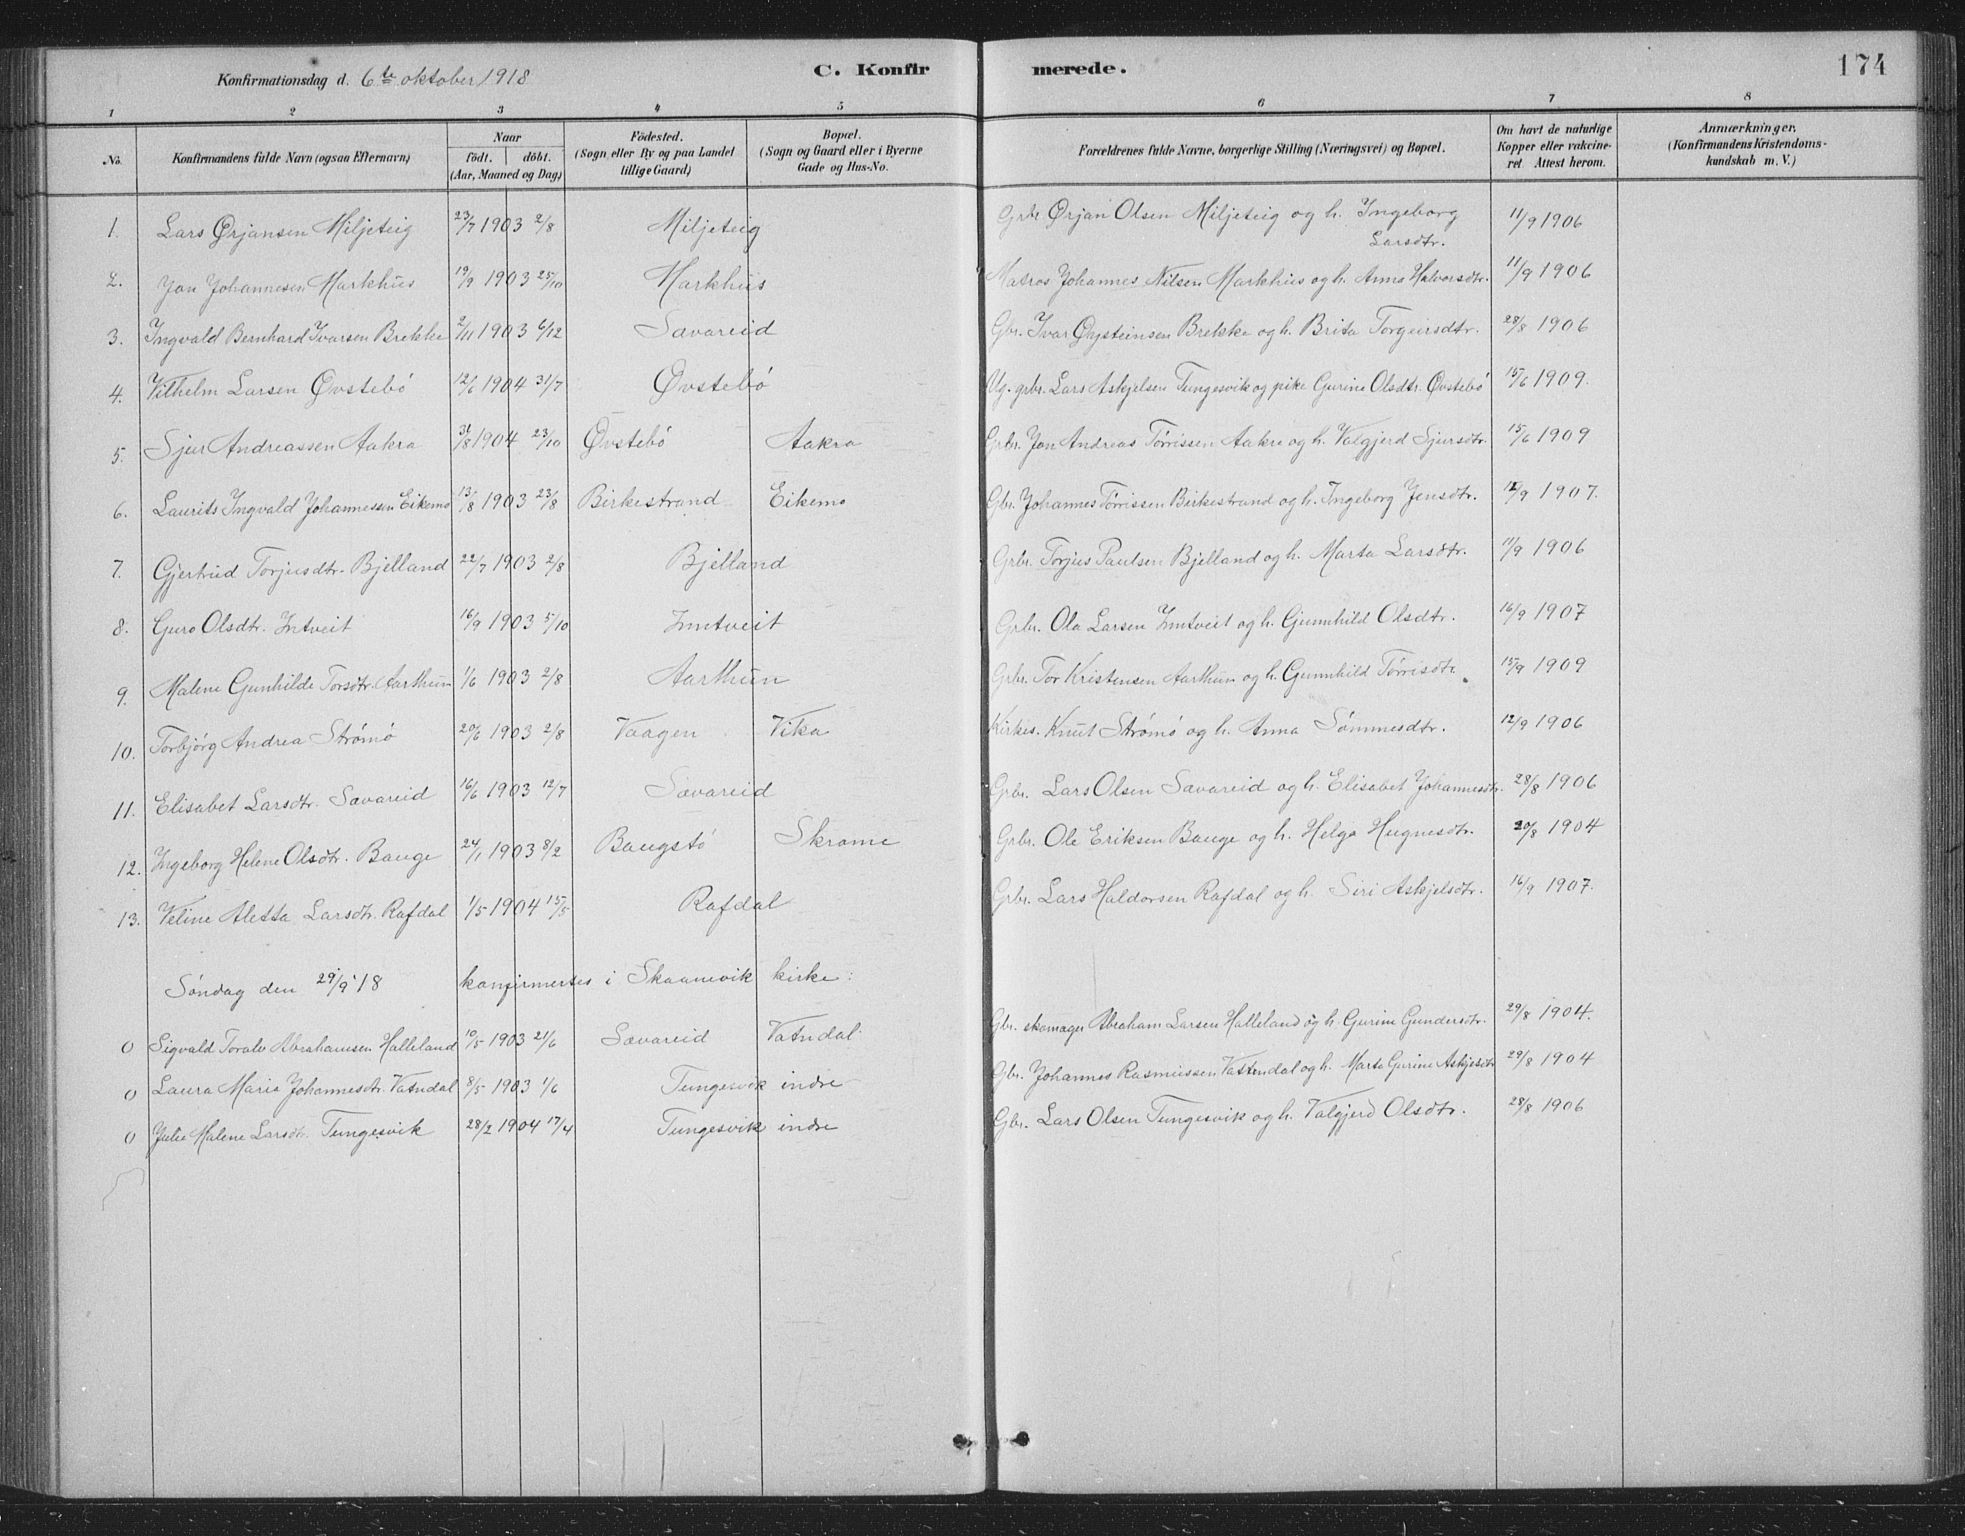 Konfirmationsdag d. 6te oktober 1918 C. Konfirmerede. 174
1 2 3 4 5 6 7 8
No. Konfirmandens fulde Navn (ogsaa Efternavn) Naar födt. döbt. (Aar, Maaned og Dag) Födested. (Sogn eller By og paa Landet tillige Gaard) Bopæl. (Sogn og Gaard eller i Byerne Gade og Hus-No. Forældrenes fulde Navne, borgerlige Stilling (Næringsvei) og Bopæl. Om havt de naturlige Kopper eller vakcineret. Attest herom. Anmærkninger. (Konfirmandens Kristendomskundskab m. V.)
1. Lars Ørjansen Miljeteig 23/7 1903 2/8 Miljeteig Grbr. Ørjan Olsen Miljeteig og h. Ingeborg Larsdtr. 11/9 1906
2. Jon Johannesen Markhus 19/9 1903 25/10 Markhus Matros Johannes Nilsen Markhus og h. Anna Halvorsdtr. 11/9 1906
3. Ingvald Bernhard Ivarsen Brekke 2/11 1903 6/12 Sævareid Gbr. Ivar Øysteinsen Brekke og h. Brita Torgeirsdtr. 28/8 1906
4. Vilhelm Larsen Øvstebö 12/6 1904 31/7 Øvstebö Ug. grbr. Lars Askjelsen Tungesvik og pike Gurine Olsdtr. Øvstebö 15/6 1909.
5. Sjur Andreassen Aakra 31/8 1904 23/10 Øvstebö Aakra Grbr. Jon Andreas Törrissen Aakre og h. Valgjerd Sjursdtr. 15/6 1909
6. Laurits Ingvald Johannessen Eikemo 13/8 1903 23/8 Birkestrand Eikemo Gbr. Johannes Törrissen Birkestrand og h. Ingeborg Jensdtr. 12/9 1907.
7. Gjertrud Torjusdtr. Bjelland 22/7 1903 2/8 Bjelland Grbr. Torjus Paulsen Bjelland og h. Marta Larsdtr. 11/9 1906
8. Guro Olsdtr. Intveit 16/9 1903 5/10 Inntveit Grbr. Ola Larsen Inntveit og h. Gunnhild Olsdtr. 16/9 1907
9. Malene Gunhilde Torsdtr. Aarthun 1/6 1903 2/8 Aarthun Grbr. Tor Kristensen Aarthun og h. Gunnhild Törrisdtr. 15/9 1909
10. Torbjörg Andrea Strömö 20/6 1903 2/8 Vaagen Vika Kirkes. Knut Strömö og h. Anna Sömmesdtr. 12/9 1906
11. Elisabet Larsdtr. Sævareid 16/6 1903 12/7 Sævareid Grbr. Lars Olsen Sævareid og h. Elisabet Johannesdtr. 28/8 1906
12. Ingeborg Helene Olsdtr. Bauge 24/1 1903 8/2 Baugstö Skromme Grbr. Ole Eriksen Bauge og h. Helga Hugnesdtr. 20/8 1904
13. Veline Aletta Larsdtr. Rafdal 1/5 1904 15/5 Rafdal Grbr. Lars Haldorsen Rafdal og h. Siri Askjelsdtr. 16/9 1907.
Söndag den 29/9 '18 konfirmertes i Skaanevik kirke:
0 Sigvald Toralv Abrahamsen Halleland 10/5 1903 21/6 Sævareid Vatndal Gbr. skomager Abraham Larsen Halleland og h. Gurine Gundersdtr. 29/8 1904.
0 Laura Maria Johannesdtr. Vatndal 8/5 1903 1/6 Tungesvik indre Gbr. Johannes Rasmussen Vattendal og h. Marta Gurine Askjelsdtr 29/8 1904
0 Julie Malene Larsdtr. Tungesvik 28/2 1904 17/4 Tungesvik indre Gbr. Lars Olsen Tungesvik og h. Valgjerd Olsdtr. 28/8 1906